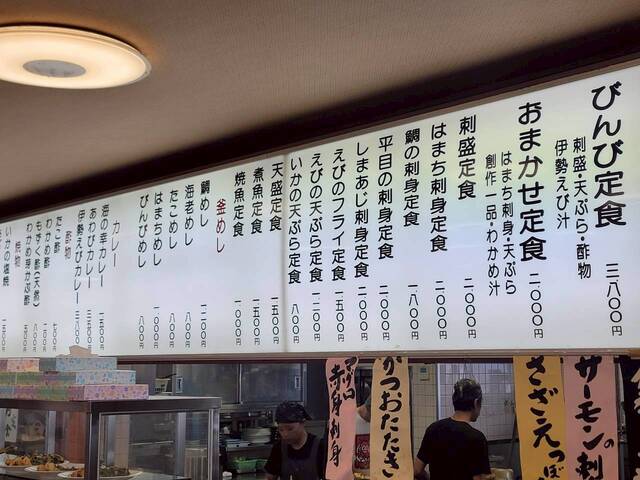 びんび定食 三八〇〇円
刺盛・天ぷら・酢物
伊勢えび汁
おまかせ定食 二〇〇〇円
はまち刺身・天ぷら
創作一品・わかめ汁
刺盛定食 二〇〇〇円
はまち刺身定食 二〇〇〇円
鯛の刺身定食 一八〇〇円
平目の刺身定食 二〇〇〇円
しまあじ刺身定食 二〇〇〇円
えびのフライ定食 一五〇〇円
えびの天ぷら定食 一二〇〇円
いかの天ぷら定食 八〇〇円
天盛定食 一五〇〇円
煮魚定食 一五〇〇円
焼魚定食 一〇〇〇円
釜めし
鯛めし 一二〇〇円
海老めし 八〇〇円
たこめし 八〇〇円
はまちめし 一〇〇〇円
びんびめし 八〇〇円
カレー
海の幸カレー 一五〇〇円
あわびカレー 三五〇〇円
伊勢えびカレー 三八〇〇円
酢物
たこ酢 七〇〇円
わかめ酢
もずく酢(天然) 八〇〇円
わかめ芽かぶ酢 五〇〇円
焼物
いかの塩焼
サーモンの刺
さざえつぼ
かつおたたき
マグロ
赤身刺身